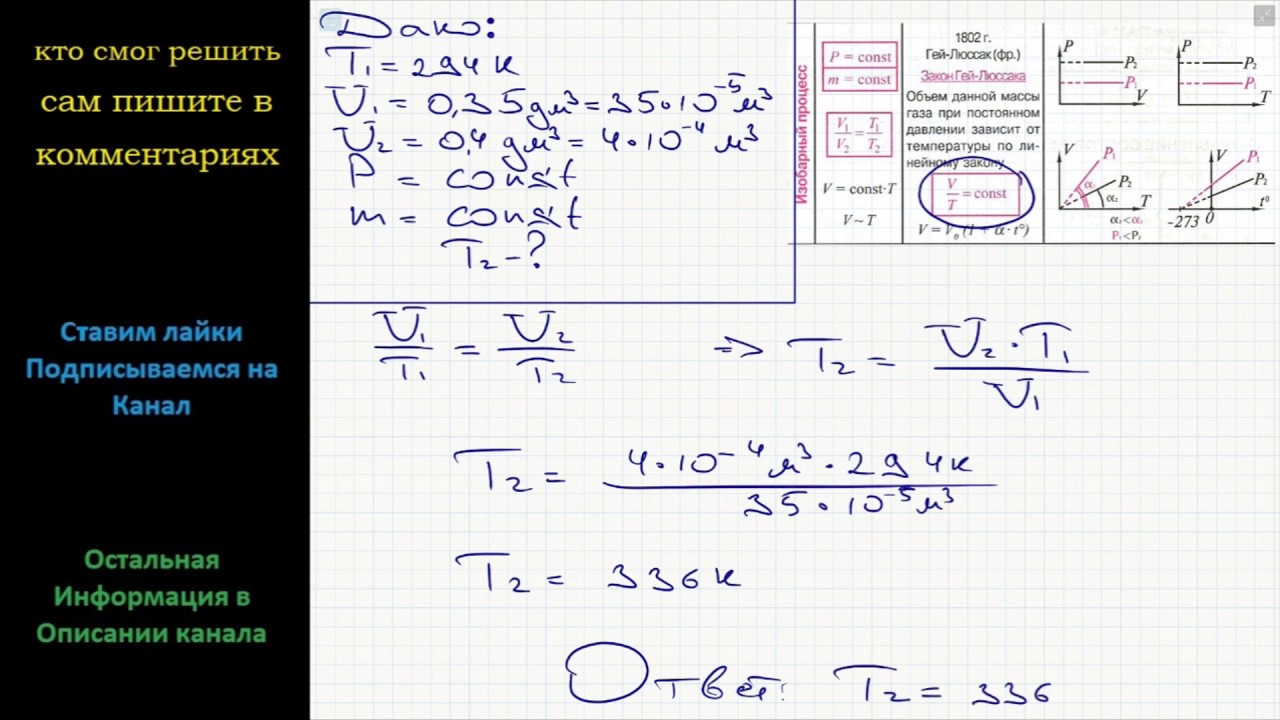 кто смог решить
сам пишите в
комментариях
Ставим лайки
Подписываемся на
Канал
Остальная
Информация в
Описании канала
Дано:
T₁ = 294 К
V₁ = 0,35 дм³ = 35·10⁻⁵ м³
V₂ = 0,4 дм³ = 4·10⁻⁴ м³
P = const
m = const
T₂ - ?
Изобарный процесс
P = const
m = const
V₁/V₂ = T₁/T₂
V = const·T
V~T
1802 г.
Гей-Люссак (фр.)
Закон Гей-Люссака
Объем данной массы
газа при постоянном
давлении зависит от
температуры по ли-
нейному закону
V/T = const
V = V₀ (1 + α · t°)
P
P₂
P₁
V
P
P₂
P₁
T
V
P₁
P₂
α₁
α₂
T
α₂<α₁
P₁<P₂
V
P₁
P₂
-273 0 t°
V₁/T₁ = V₂/T₂ => T₂ = V₂·T₁/V₁
T₂ = 4·10⁻⁴ м³ · 294 К / 35·10⁻⁵ м³
T₂ = 336 К
Ответ: T₂ = 336